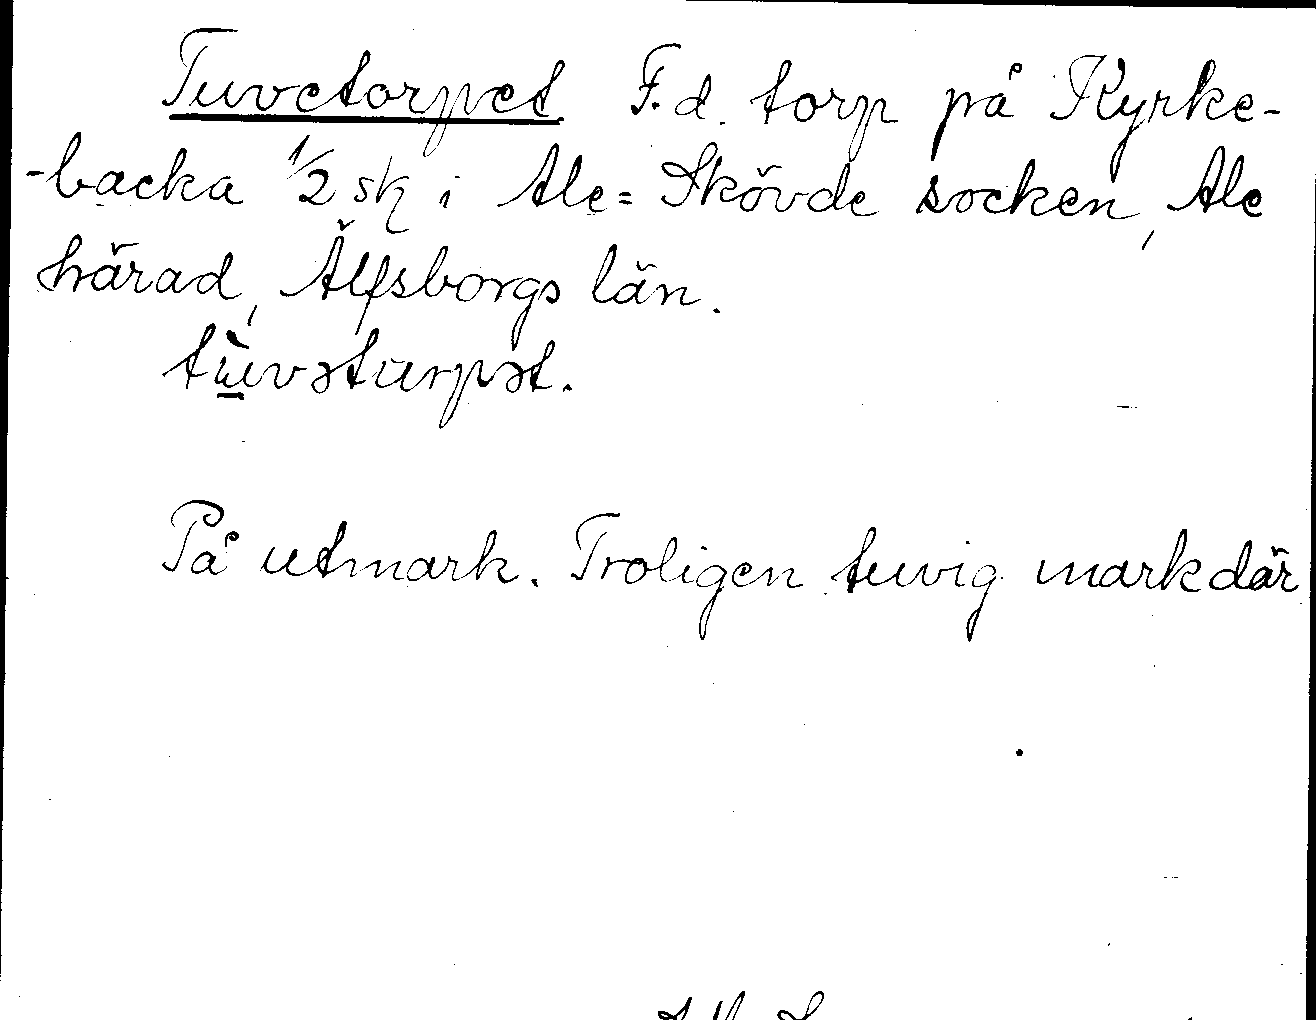 Tuvetorpet F.d. torp på Kyrke-
-backa 1/2 sk i Ale=Skövde socken, Ale
härad, Älfsborgs län.
tùvəturpət.
På utmark. Troligen tuvig mark där